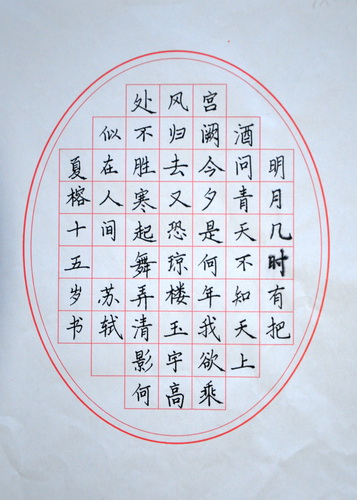 明月几时有把
酒问青天不知天上
宫阙今夕是何年我欲乘
风归去又恐琼楼玉宇高
处不胜寒起舞弄清影何
似在人间 苏轼
夏榕十五岁书